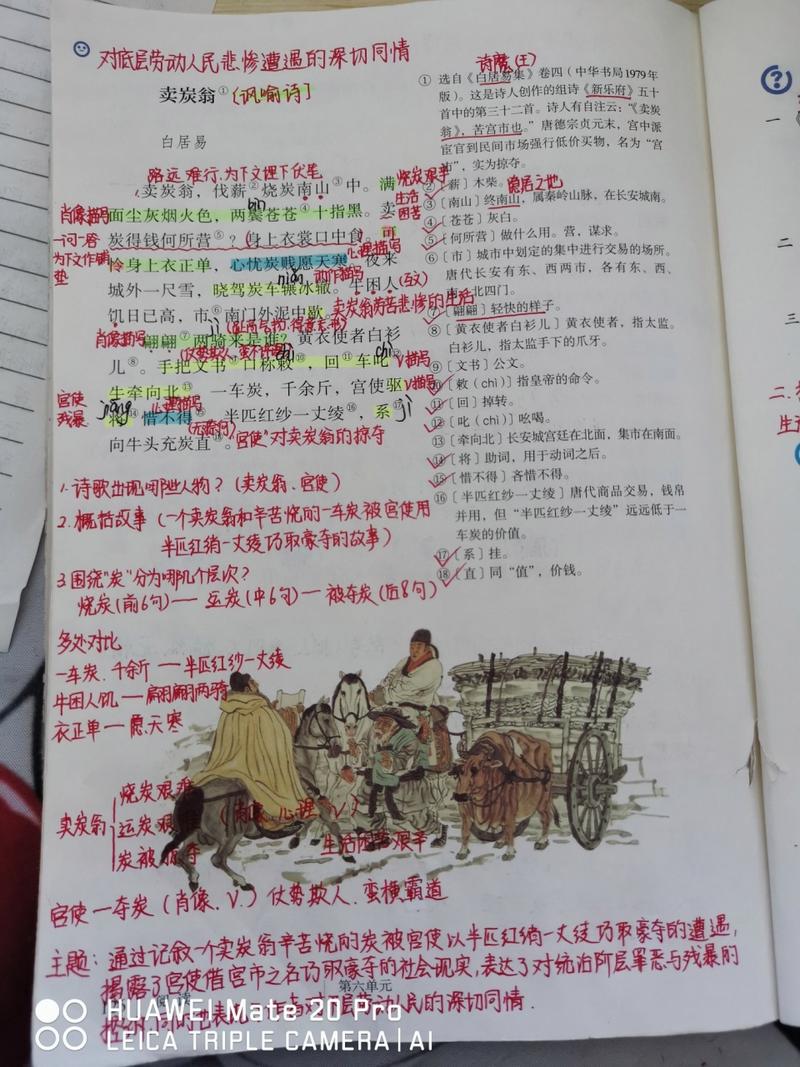 对底层劳动人民悲惨遭遇的深切同情
卖炭翁①(讽喻诗]
白居易
路远难行,为下文埋下伏笔
卖炭翁,伐薪②烧炭南山③中。满
肖像描写
面尘灰烟火色,两鬓苍苍④十指黑。卖
bìn
一问一答
为下文作铺垫
炭得钱何所营⑤?身上衣裳口中食。可
心理描写
怜身上衣正单,心忧炭贱愿天寒。夜来
niǎn
动作描写
城外一尺雪,晓驾炭车辗冰辙。牛困人
(互文)
饥日已高,市⑥南门外泥中歇。
卖炭翁劳苦悲惨的生活
肖像描写
翩翩⑦两骑来是谁?黄衣使者白衫
jì
儿⑧。手把文书⑨口称敕⑩,回⑪车叱⑫
chì
V描写
牛牵向北⑬。一车炭,千余斤,宫使驱
V描写
宫使
残暴
jiāng
心理描写
将⑭惜不得⑮。半匹红纱一丈绫⑯,系⑰
jì
(无奈何)
向牛头充炭直⑱。
"宫使"对卖炭翁的掠夺
诗魔(王)
① 选自《白居易集》卷四(中华书局1979年
版)。这是诗人创作的组诗《新乐府》五十
首中的第三十二首。诗人有自注云:“《卖炭
翁》,苦宫市也。”唐德宗贞元末,宫中派
宦官到民间市场强行低价买物,名为“宫
市”,实为掠夺。
烧炭艰辛
生活
困苦
②〔薪〕木柴。
隐居之地
③〔南山〕终南山,属秦岭山脉,在长安城南。
④〔苍苍〕灰白。
⑤〔何所营〕做什么用。营,谋求。
⑥〔市〕城市中划定的集中进行交易的场所。
唐代长安有东、西两市,各有东、西、
南、北四门。
⑦〔翩翩〕轻快的样子。
⑧〔黄衣使者白衫儿〕黄衣使者,指太监。
白衫儿,指太监手下的爪牙。
⑨〔文书〕公文。
⑩〔敕(chì)〕指皇帝的命令。
⑪〔回〕掉转。
⑫〔叱(chì)〕吆喝。
⑬〔牵向北〕长安城宫廷在北面,集市在南面。
⑭〔将〕助词,用于动词之后。
⑮〔惜不得〕吝惜不得。
⑯〔半匹红纱一丈绫〕唐代商品交易,钱帛
并用,但“半匹红纱一丈绫”远远低于一
车炭的价值。
⑰〔系〕挂。
⑱〔直〕同“值”,价钱。
1.诗歌出现哪些人物?(卖炭翁、宫使)
2.概括故事(一个卖炭翁和辛苦烧的一车炭被宫使用
半匹红绡一丈绫巧取豪夺的故事)
3.围绕"炭"分为哪几个层次?
烧炭(前6句)—运炭(中6句)—被夺炭(后8句)
多处对比
一车炭、千余斤—半匹红纱一丈绫
牛困人饥—翩翩两骑
衣正单—愿天寒
卖炭翁
烧炭艰难
运炭艰难(肖像、心理、V)
生活困苦艰辛
炭被掠夺
宫使—夺炭(肖像、V.)仗势欺人、蛮横霸道
主题:通过记叙一个卖炭翁辛苦烧的炭被宫使以半匹红绡一丈绫巧取豪夺的遭遇,
揭露了宫使借宫市之名巧取豪夺的社会现实,表达了对统治阶层罪恶与残暴的
底层劳动人民的深切同情.
第六单元
HUAWEI Mate 20 Pro
LEICA TRIPLE CAMERA | AI
一
二
三